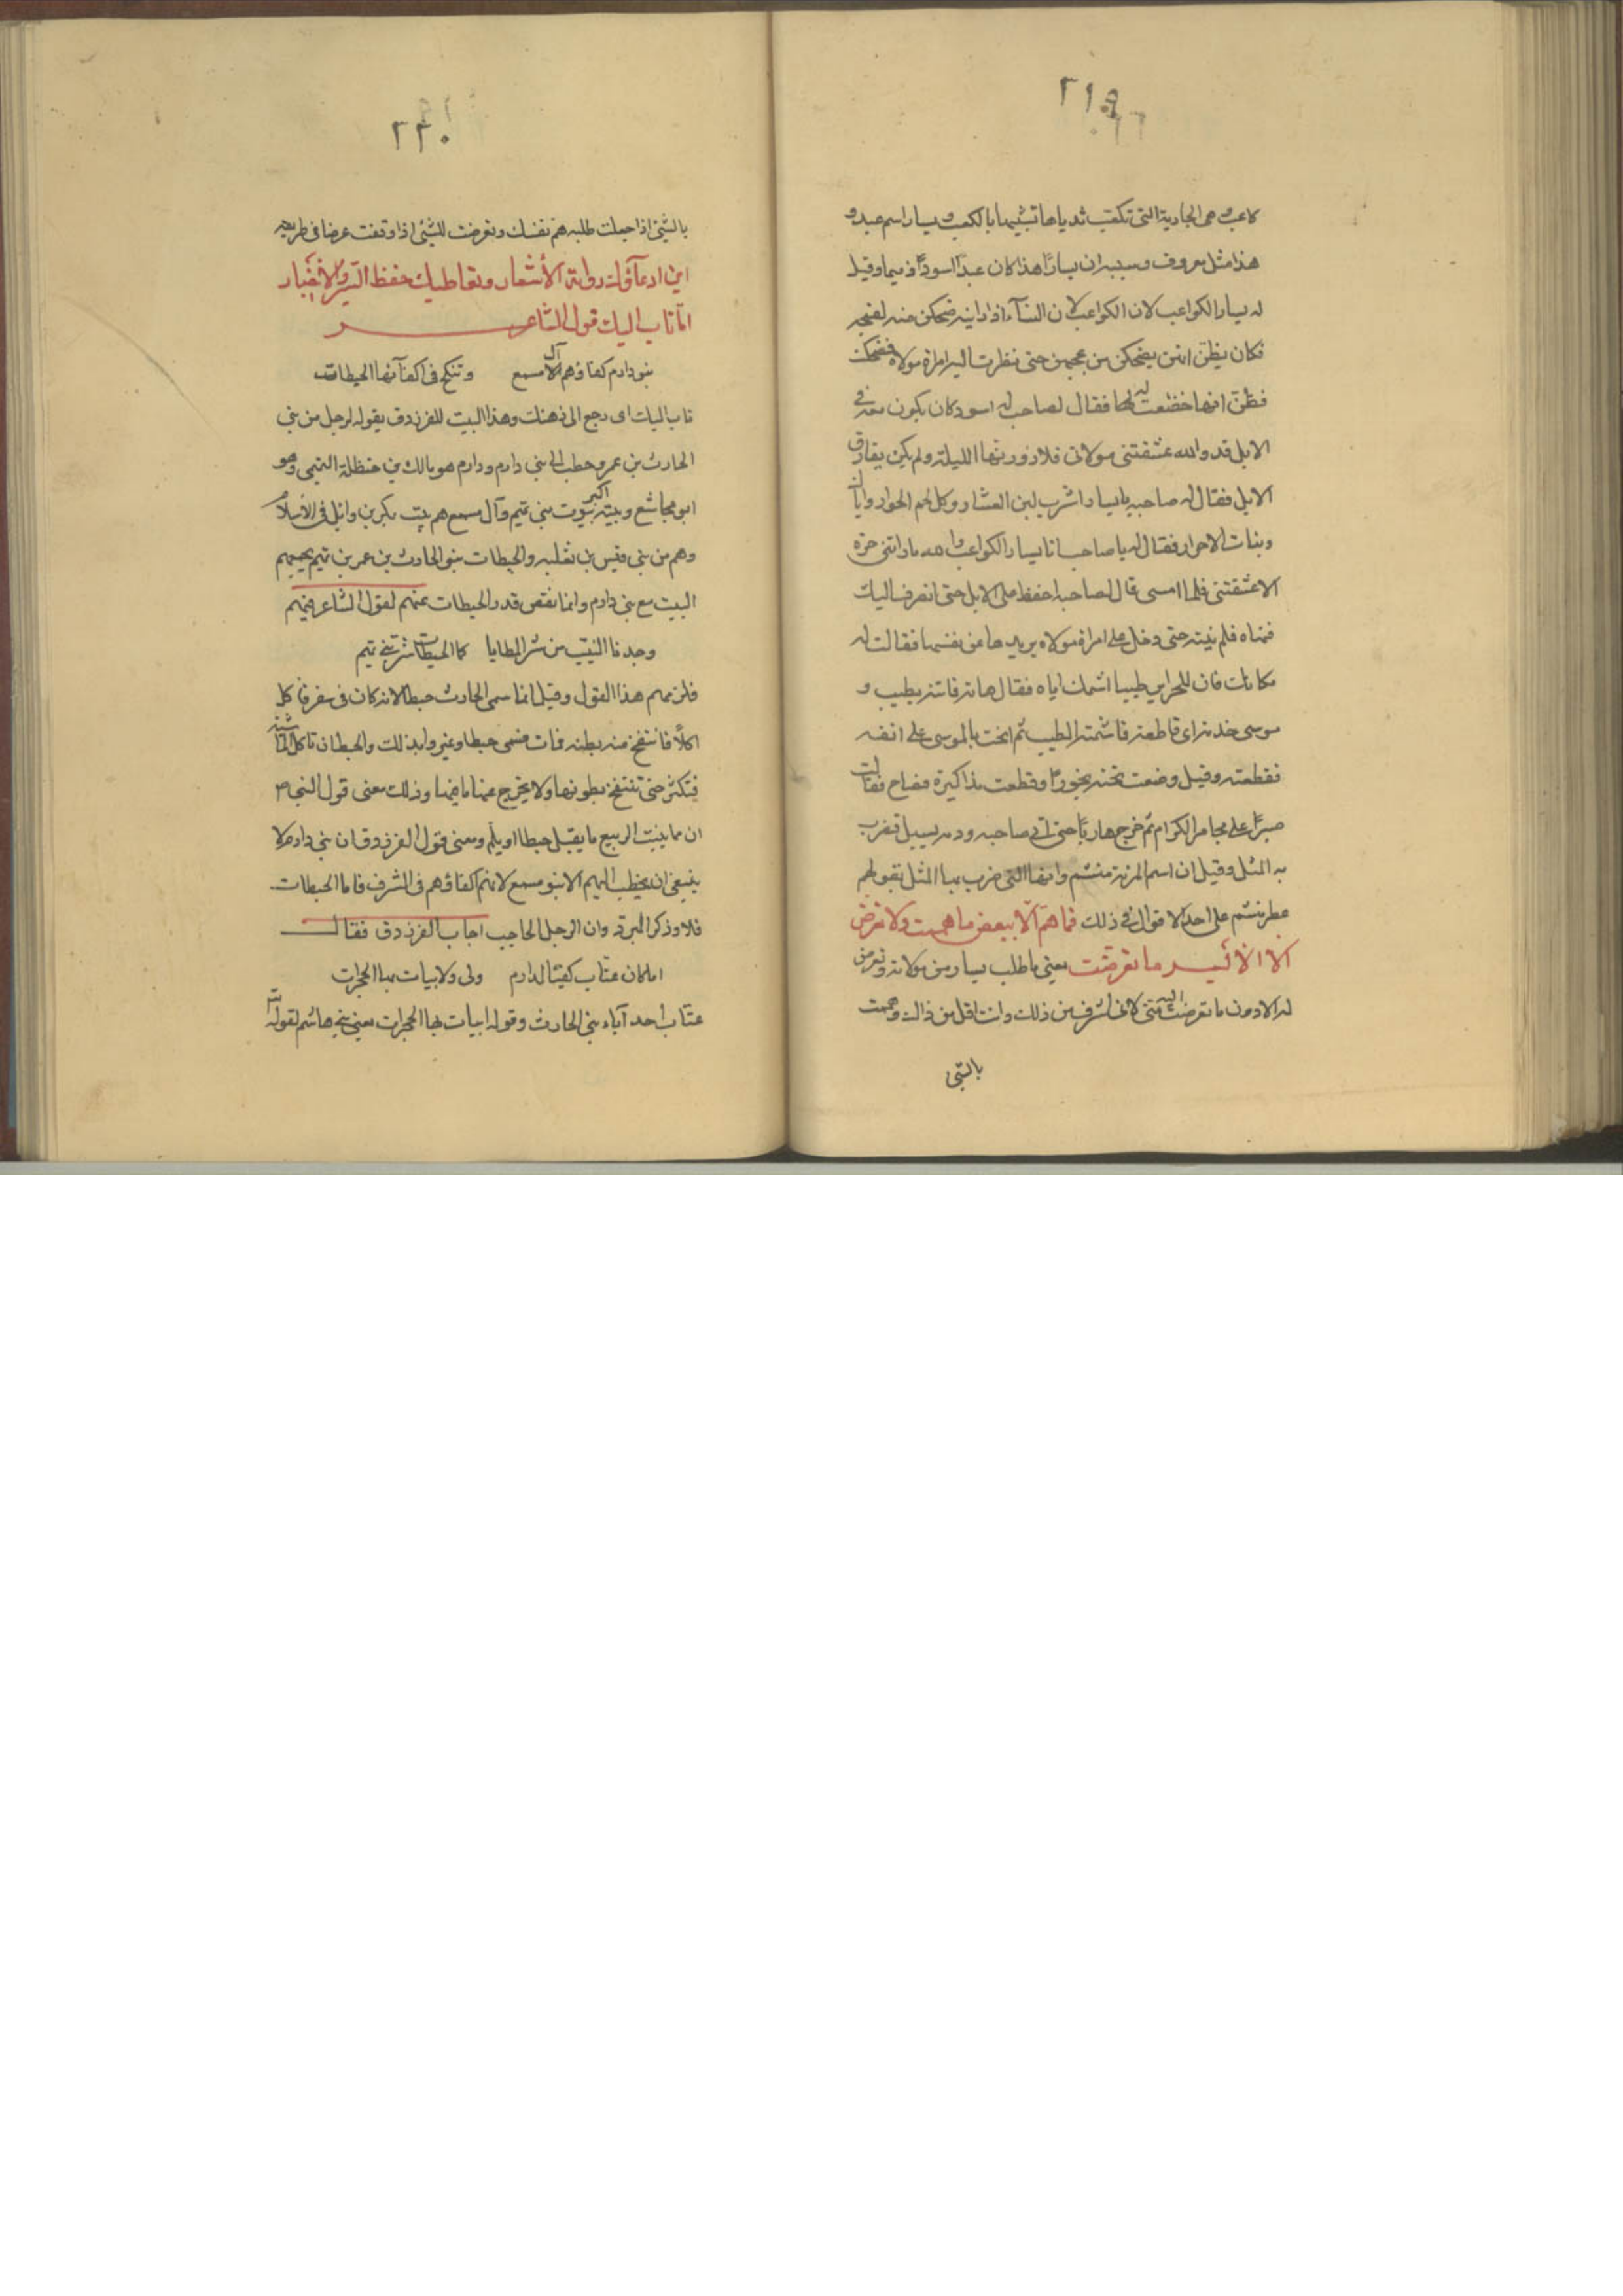 ٢١٩
كاعب وهى الجارية التى تكعب ثدياها تشبيها بالكعب ويسار اسم عبد و
هذا مثل معروف وسببه ان يسارًا هذا كان عبدًا اسود دميما وقيل
له يسار الكواعب لان الكواعب لان النسآء اذا راينه ضحكن منه لقبحه
فكان يظن انهن يضحكن من عجبهن حتى نظرت اليه امراة مولاه فضحكت
فظن انها خضعت له لها فقال لصاحب له اسود كان يكون معه فى
الابل قد والله عشقتنى مولاتى فلازورنها الليلة ولم يكن يفارق
الابل فقال له صاحبه يا يسار اشرب لبن العشار وكل لحم الحوار واياك
وبنات الاحرار فقال له يا صاحب انا يسار الكواعب والله ما راتنى حرة
الا عشقتنى فلما امسى قال لصاحبه احفظ على الابل حتى انصرف اليك
فنهاه فلم ينته حتى دخل على امراة مولاه يريدها عن نفسها فقالت له
مكانك فان للحراير طيبا اشمك اياه فقال هاته فاتته بطيب و
موسى خذته اى قاطعة فاشمته الطيب ثم انحت بالموسى على انفه
فقطعته وقيل وضعت تحته بخورًا وقطعت مذاكيره فصاح فقالت
صبرًا على مجامر الكرام ثم خرج هاربًا حتى اتى صاحبه ودمه يسيل فضرب
به المثل وقيل ان اسم المرءة منشم وانها التى ضرب بها المثل بقولهم
عطر منشم على احد الاقوال فى ذلك فما همّ الا ببعض ما هممت ولا تعرض
الا لأيسر ما تعرضت يعنى ما طلب يسار من مولاته وتعرض
له الا دون ما تعرضت اليه منى لانى اشرف من ذلك وانت اقل من ذالك وهممت
بالشئ
٢٢٠
بالشئ اذا جعلت طلبه هم نفسك وتعرضت للشئ اذا وقفت عرضا فى طريقه
اين ادعآؤك رواية الأشعار وتعاطيك حفظ السير والأخبار
اما ثاب اليك قول الشاعر
بنو دارم كفاؤهم آل مسمع وتنكح فى اكفآئها الحبطات
ثاب اليك اى رجع الى ذهنك وهذا البيت للفرزدق يقوله لرجل من بنى
الحارث بن عمرو خطب الى بنى دارم ودارم هو مالك بن حنظلة التميمى وهو
ابو مجاشع وبيته اكبر بيوت بنى تميم وآل مسمع هم بيت بكر بن وائل فى الأسلام
وهم من بنى قيس بن ثعلبه والحبطات بنو الحارث بن عمر بن تميم يجمعهم
البيت مع بنى دارم وانما نقص قدر الحبطات عنهم لقول الشاعر فيهم
وجدنا النيب من شر المطايا كما الحبطات شر بنى تميم
فلزمهم هذا القول وقيل انما سمى الحارث حبطا لانه كان فى سفر فأكل
اكلًا فانتفخ منه بطنه فمات فسمى حبطا وعيروا بذلك والحبط ان تاكل الماشية
فتكثر حتى تنتفخ بطونها ولا يخرج عنها ما فيها وذلك معنى قول النبى ص
ان مما ينبت الربيع ما يقتل حبطا او يلم ومعنى قول الفرزدق ان بنى دارم لا
ينبغى ان يخطب اليهم الا بنو مسمع لانهم اكفاؤهم فى الشرف فاما الحبطات
فلا وذكر المبرد وان الرجل الحاجب اجاب الفرزدق فقال
اما كان عتاب كفيئا لدارم ولى ولابيات بها الحجرات
عتاب احد آباء بنى الحارث وقوله ابيات بها الحجرات يعنى بنى هاشم لقوله تع